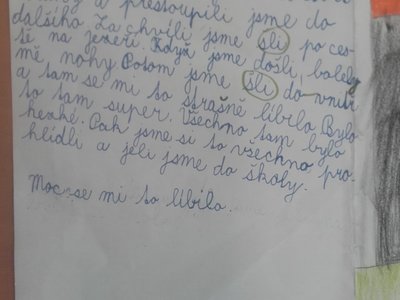 a přestoupili jsme do
dalšího. Za chvíli jsme šli po ces-
tě na jezeří. Když jsme došli, bolely
mě nohy. Potom jsme šli do vnitř
a tam se mi to strašně líbilo. Bylo
to tam super. Všechno tam bylo
hezké. Pak jsme si to všechno pro-
hlídli a jeli jsme do školy.
Moc se mi to líbilo.